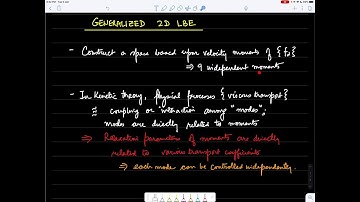 GENERALIZED 2D LBE
- Construct a space based upon velocity moments of {fα}
⇒ 9 independent moments
- In Kinetic theory, physical processes {viscous transport}
≡ coupling or interaction among "modes",
modes are directly related to moments
⇒ Relaxation parameters of moments are directly
related to various transport coefficients
⇒ each mode can be controlled independently.